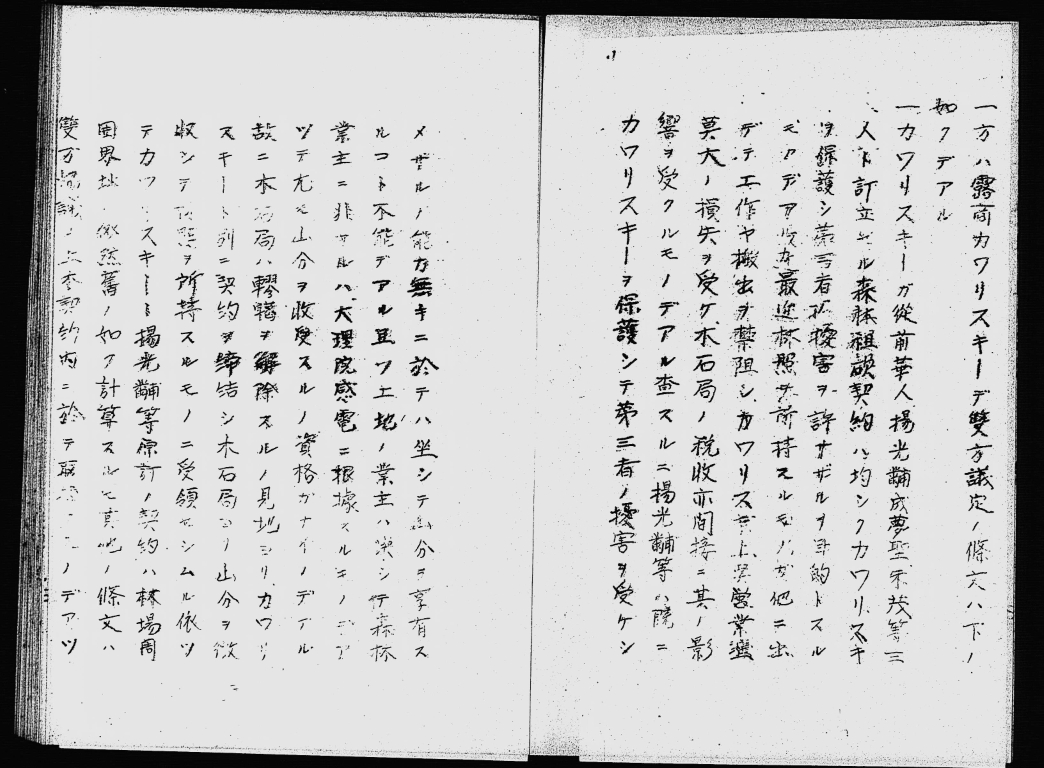 一方ハ露商カワリスキーデ雙方議定ノ條文ハ下ノ
如クデアル
一カワリスキーガ從前華人揚光黼成夢聖 茂等三
人ト訂立 ル森林租 契約ハ均シクカワリスキ
ヲ保護シ第三者ノ擾害ヲ許サザルヲ目的トスル
モノデアル 最近林照ヲ所持スルモノガ他ニ出
デテ工作ヤ搬出ヲ禁阻シカワリスキート営業
莫大ノ損失ヲ受ケ木石局ノ税收亦間接ニ其ノ影
響ヲ受クルモノデアル査スルニ揚光黼等ハ既ニ
カワリスキーヲ保護シテ第三者ノ擾害ヲ受ケシ
メザルノ能力無キニ於テハ坐シテ山分ヲ享有ス
ルコト不能デアル且ツ土地ノ業主ハ 森林
業主ニ非ザルハ大理院感電ニ根據スルモノデア
ツテ尤モ山分ヲ收受スルノ資格ガナイノデアル
故ニ本石局ハ轇轕ヲ解除スルノ見地ヨリカワリ
スキート別ニ契約ヲ締結シ木石局ヨリ山分ヲ徴
収シテ 照ヲ所持スルモノニ受領セシムル依ツ
テカワリスキート揚光黼等原訂ノ契約ハ林場周
囲界址 依然舊ノ如ク計算スルモ其他ノ條文ハ
雙方協議ノ上本契約内ニ於テ ノデアツ